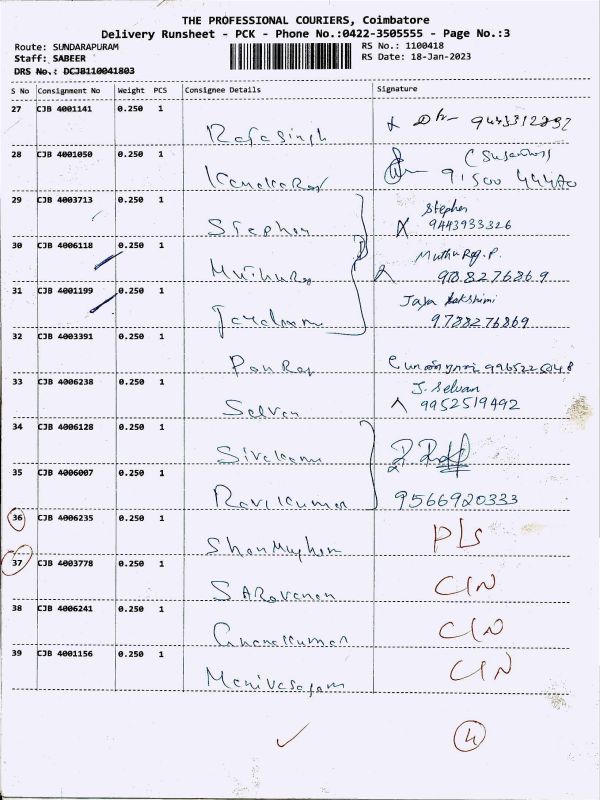 THE PROFESSIONAL COURIERS, Coimbatore
Delivery Runsheet - PCK - Phone No.:0422-3505555 - Page No.:3
Route: SUNDARAPURAM
RS No.: 1100418
Staff: SABEER
RS Date: 18-Jan-2023
DRS No.: DCJB110041803
S No Consignment No Weight PCS Consignee Details Signature
27 CJB 4001141 0.250 1
Rajasingh 9443312892
28 CJB 4001050 0.250 1
91500 44480
29 CJB 4003713 0.250 1
Stephen Stephen
9443933326
30 CJB 4006118 0.250 1
Muthuraj Muthu Raj. P.
9788276869
31 CJB 4001199 0.250 1
Jaya Lakshimi
9788276869
32 CJB 4003391 0.250 1
Ponraj
33 CJB 4006238 0.250 1
Selvan J. Selvan
9952519492
34 CJB 4006128 0.250 1
Sivakami
35 CJB 4006007 0.250 1
Ravikumar 9566920333
36 CJB 4006235 0.250 1
Shanmughan PLS
37 CJB 4003778 0.250 1
SARavanan CIN
38 CJB 4006241 0.250 1
Gnanakumar CIN
39 CJB 4001156 0.250 1
Manivasagam CIN
4